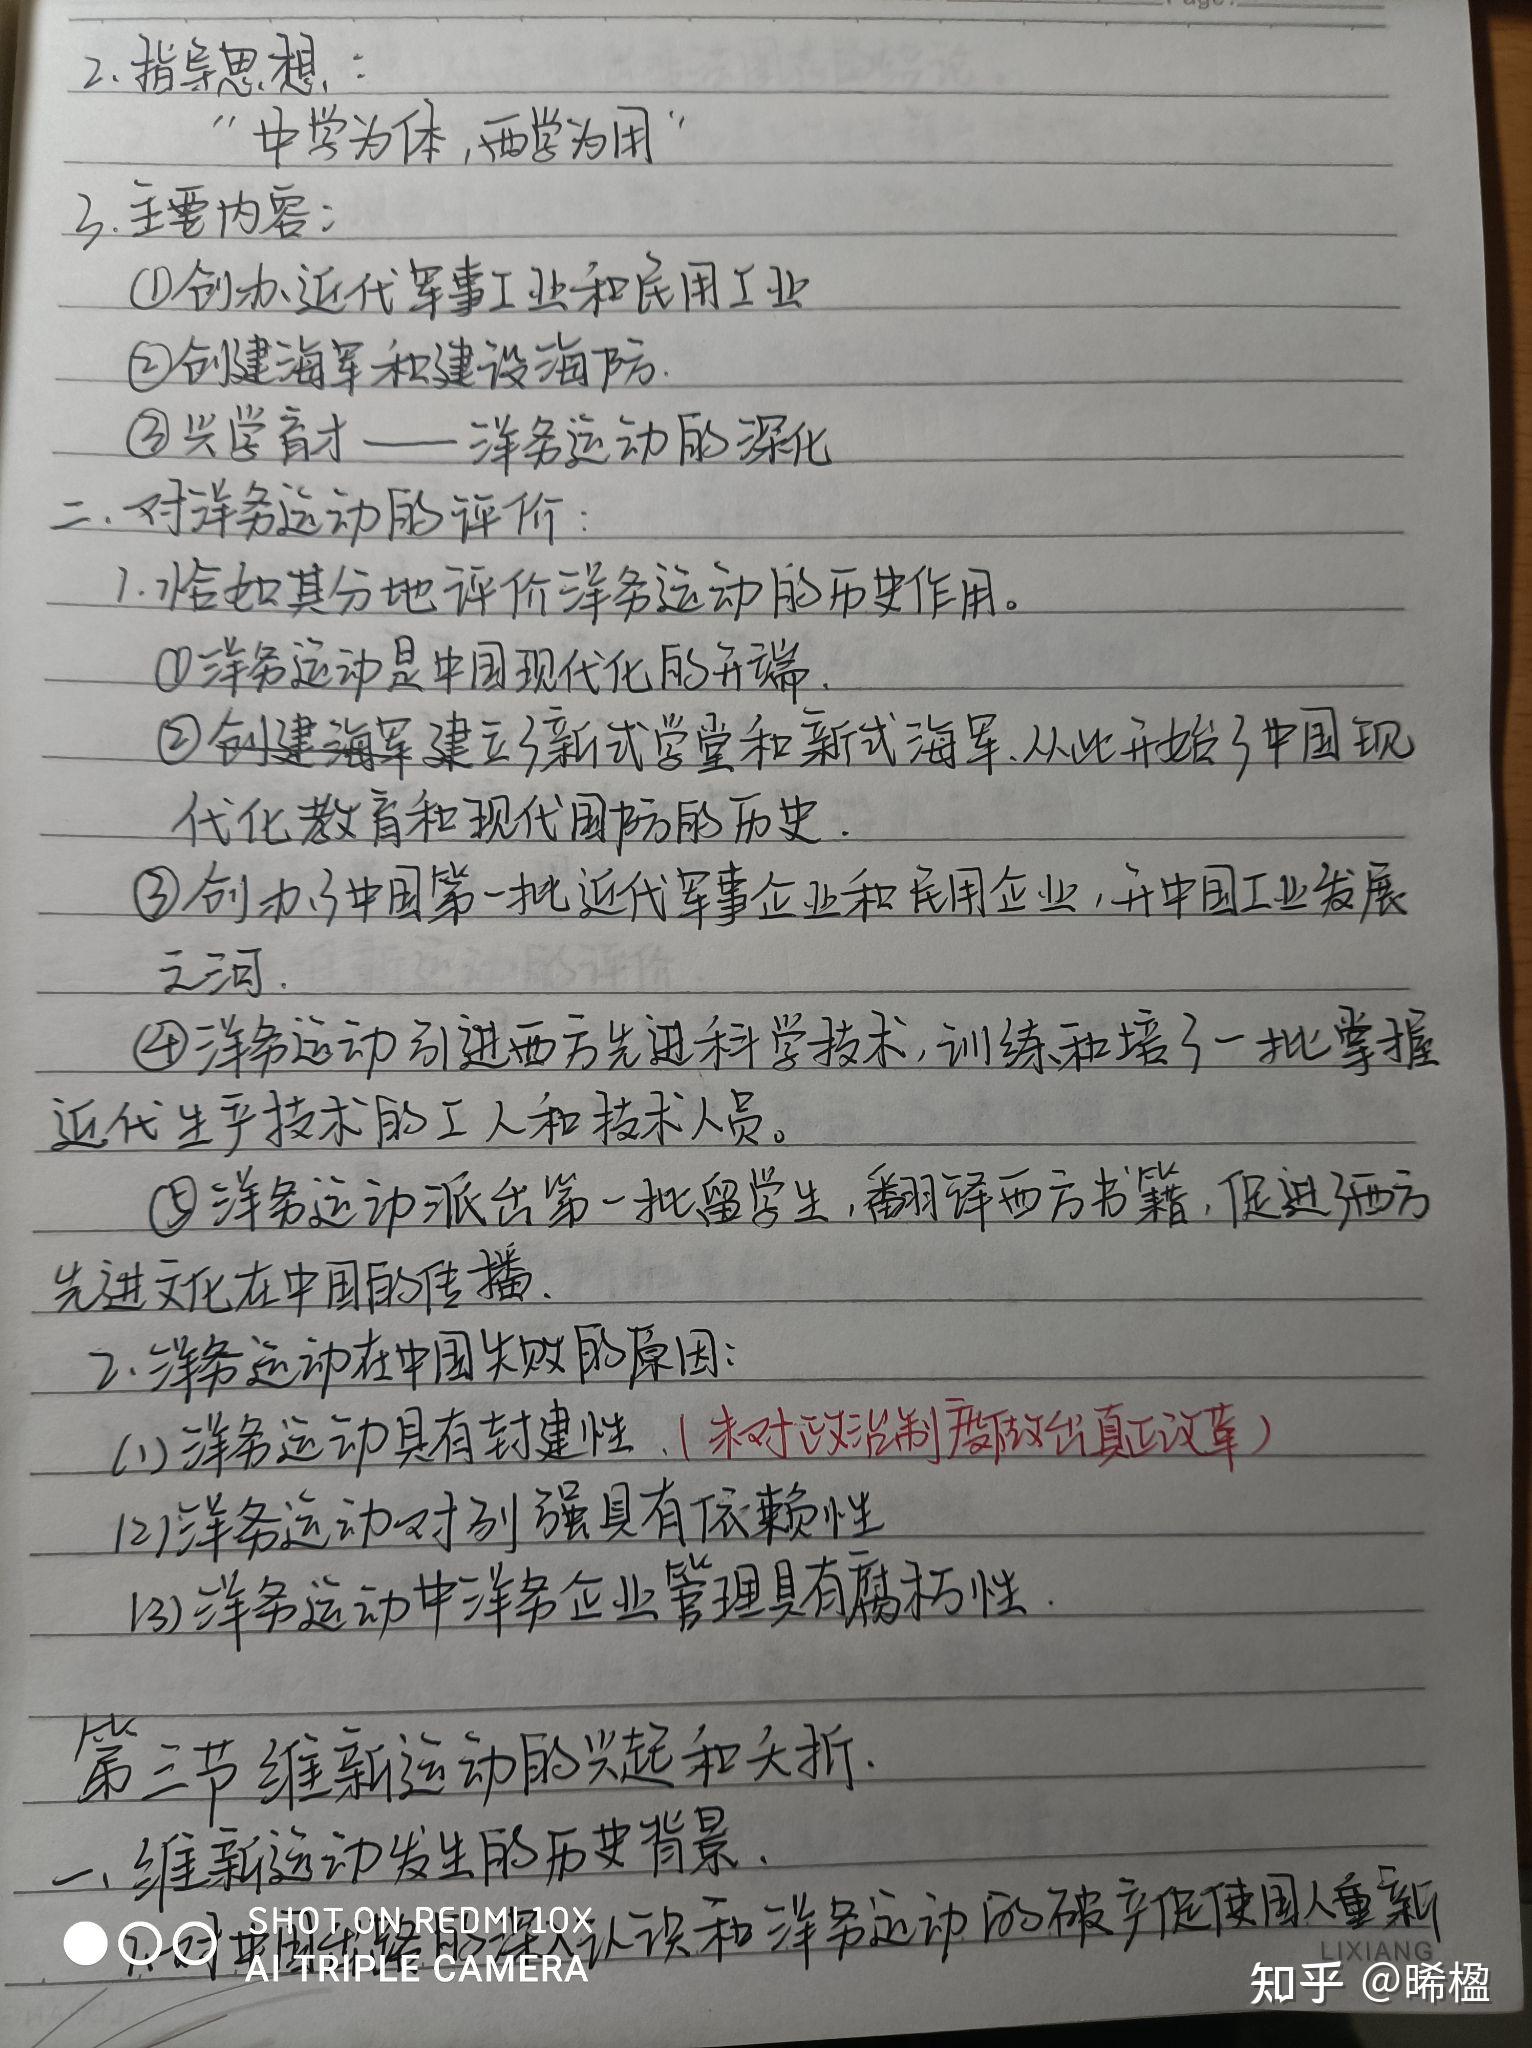 2.指导思想:
"中学为体,西学为用"
3.主要内容:
①创办近代军事工业和民用工业
②创建海军和建设海防.
③兴学育才——洋务运动的深化
二.对洋务运动的评价:
1.恰如其分地评价洋务运动的历史作用。
①洋务运动是中国现代化的开端.
②创建海军建立了新式学堂和新式海军.从此开始了中国现
代化教育和现代国防的历史.
③创办了中国第一批近代军事企业和民用企业,开中国工业发展
之河.
④洋务运动引进西方先进科学技术,训练和培了一批掌握
近代生产技术的工人和技术人员。
⑤洋务运动派出第一批留学生,翻译西方书籍,促进了西方
先进文化在中国的传播.
2.洋务运动在中国失败的原因:
(1)洋务运动具有封建性.(未对政治制度做出真正改革)
(2)洋务运动对列强具有依赖性
(3)洋务运动中洋务企业管理具有腐朽性.
第三节维新运动的兴起和夭折.
一、维新运动发生的历史背景.
1.对中国的深入认识和洋务运动的破产促使国人重新
SHOT ON REDMI 10X
AI TRIPLE CAMERA
LIXIANG
知乎 @晞楹